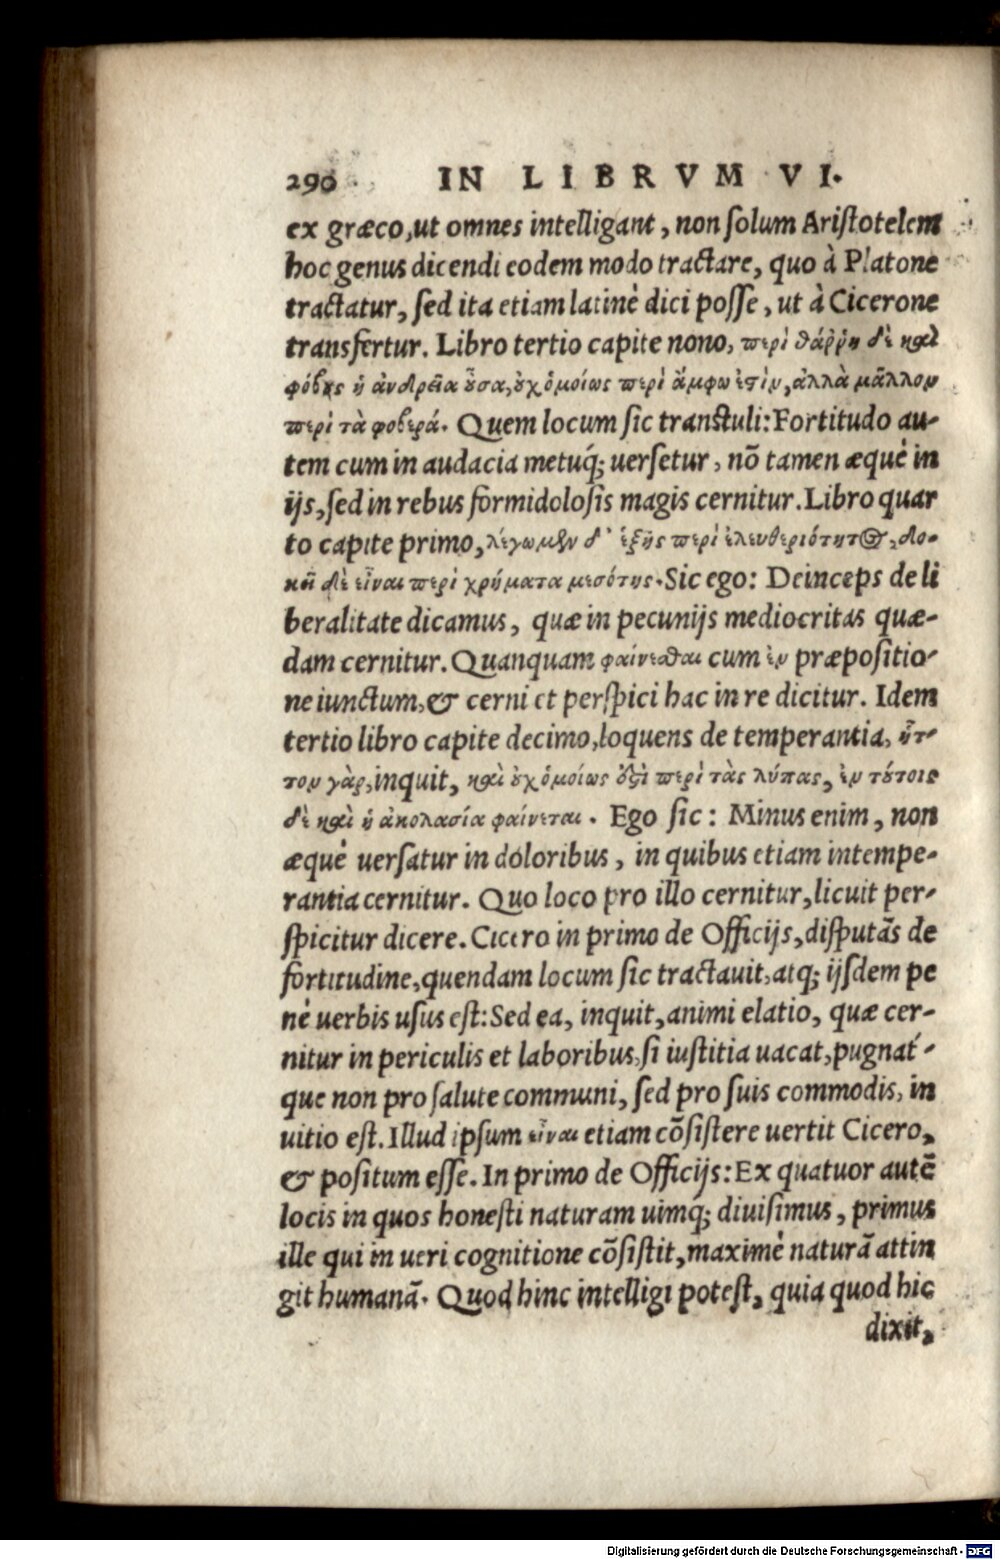 290 IN LIBRVM VI.
ex græco, ut omnes intelligant, non solum Aristotelem
hoc genus dicendi eodem modo tractare, quo à Platone
tractatur, sed ita etiam latinè dici posse, ut à Cicerone
transfertur. Libro tertio capite nono, περὶ θάῤῥη δὲ καὶ
φόβȣς ἡ ἀνδρεία ȣ̓͂σα, ȣ̓χ ὁμοίως περὶ ἄμφω ἐστὶν, ἀλλὰ μᾶλλον
περὶ τὰ φοβερά. Quem locum sic transtuli: Fortitudo au-
tem cum in audacia metuq́; uersetur, nõ tamen æquè in
ijs, sed in rebus formidolosis magis cernitur. Libro quar
to capite primo, λέγωμεν δ' ἑξῆς περὶ ἐλευθεριότητος, δο-
κεῖ δὲ εἶναι περὶ χρήματα μεσότης. Sic ego: Deinceps de li
beralitate dicamus, quæ in pecunijs mediocritas quæ-
dam cernitur. Quanquam φαίνεσθαι cum ἐν præpositio-
ne iunctum, & cerni et perspici hac in re dicitur. Idem
tertio libro capite decimo, loquens de temperantia, ἧτ-
τον γὰρ, inquit, καὶ ȣ̓χ ὁμοίως ἐστὶ περὶ τὰς λύπας, ἐν τȣ́τοις
δὲ καὶ ἡ ἀκολασία φαίνεται. Ego sic: Minus enim, non
æquè uersatur in doloribus, in quibus etiam intempe-
rantia cernitur. Quo loco pro illo cernitur, licuit per-
spicitur dicere. Cicero in primo de Officijs, disputãs de
fortitudine, quendam locum sic tractauit, atq; ijsdem pe
nè uerbis usus est: Sed ea, inquit, animi elatio, quæ cer-
nitur in periculis et laboribus, si iustitia uacat, pugnat́-
que non pro salute communi, sed pro suis commodis, in
uitio est. Illud ipsum εἶναι etiam cõsistere uertit Cicero,
& positum esse. In primo de Officijs: Ex quatuor autẽ
locis in quos honesti naturam uimq; diuisimus, primus
ille qui in ueri cognitione cõsistit, maximè naturã attin
git humanã. Quod hinc intelligi potest, quia quod hic
dixit,
Digitalisierung gefördert durch die Deutsche Forschungsgemeinschaft - DFG